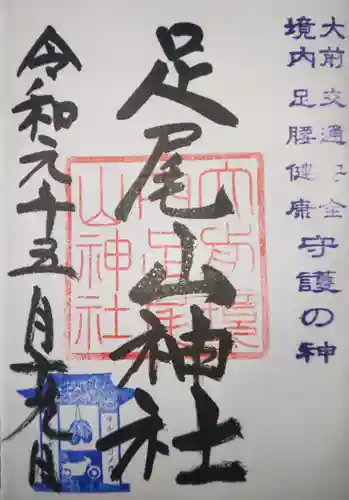 大前 交通安全
境内 足腰健康 守護の神
足尾山神社
令和元年五月十九日